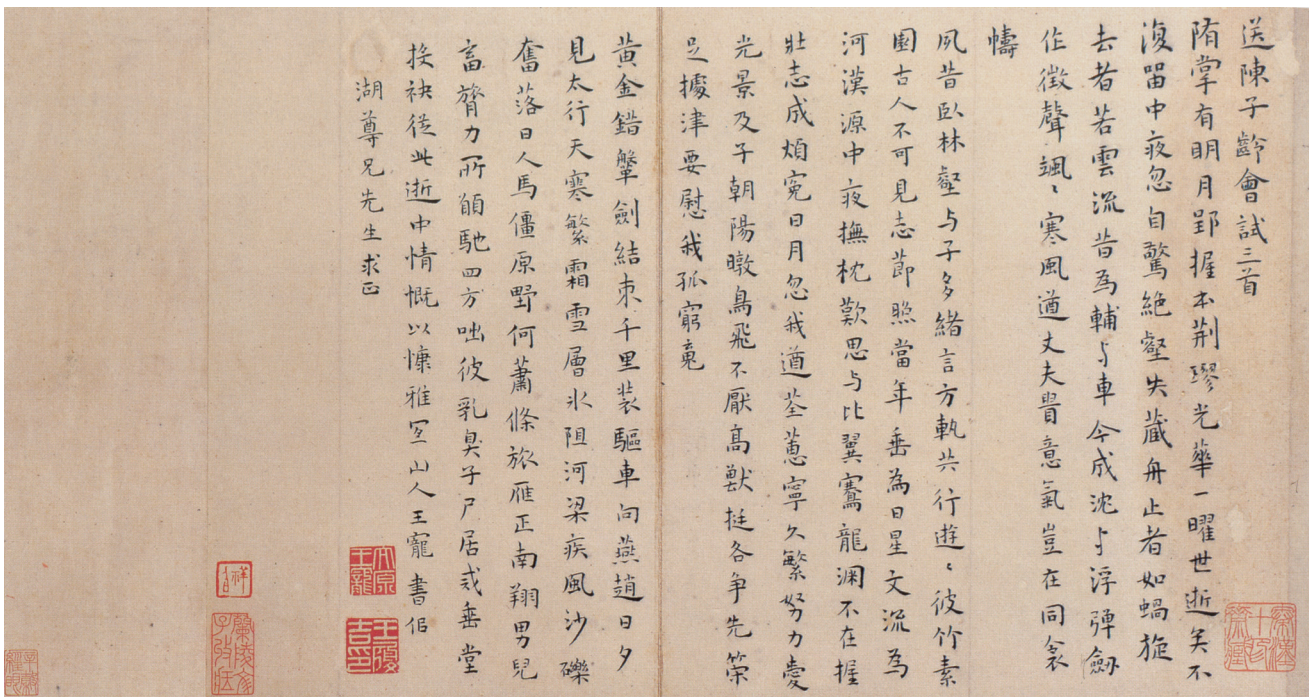 送陳子齡會試三首
隋掌有明月郢握本荆璆光華一曜世逝矣不
復留中夜忽自驚絕壑失藏舟止者如蝸旋
去者若雲流昔為輔与車今成沈与浮彈劒
作徵聲颯〻寒風遒丈夫貴意氣豈在同衾
幬
夙昔臥林壑与子多緒言方軌共行遊〻彼竹素
園古人不可見志節照當年垂為日星文流為
河漢源中夜撫枕歎思与比翼騫龍淵不在握
壯志成煩冤日月忽我遒荃蕙寧久繁努力愛
光景及子朝陽暾鳥飛不厭高獸挺各爭先策
足據津要慰我孤窮
黃金錯鞶劍結束千里裝驅車向燕趙日夕
見太行天寒繁霜雪層冰阻河梁疾風沙礫
奮落日人馬僵原野何蕭條旅雁正南翔男兒
畜膂力所願馳四方咄彼乳臭子尸居戒垂堂
投袂從此逝中情慨以慷雅宜山人王寵書似
湖尊兄先生求正
太原王寵
王履吉印